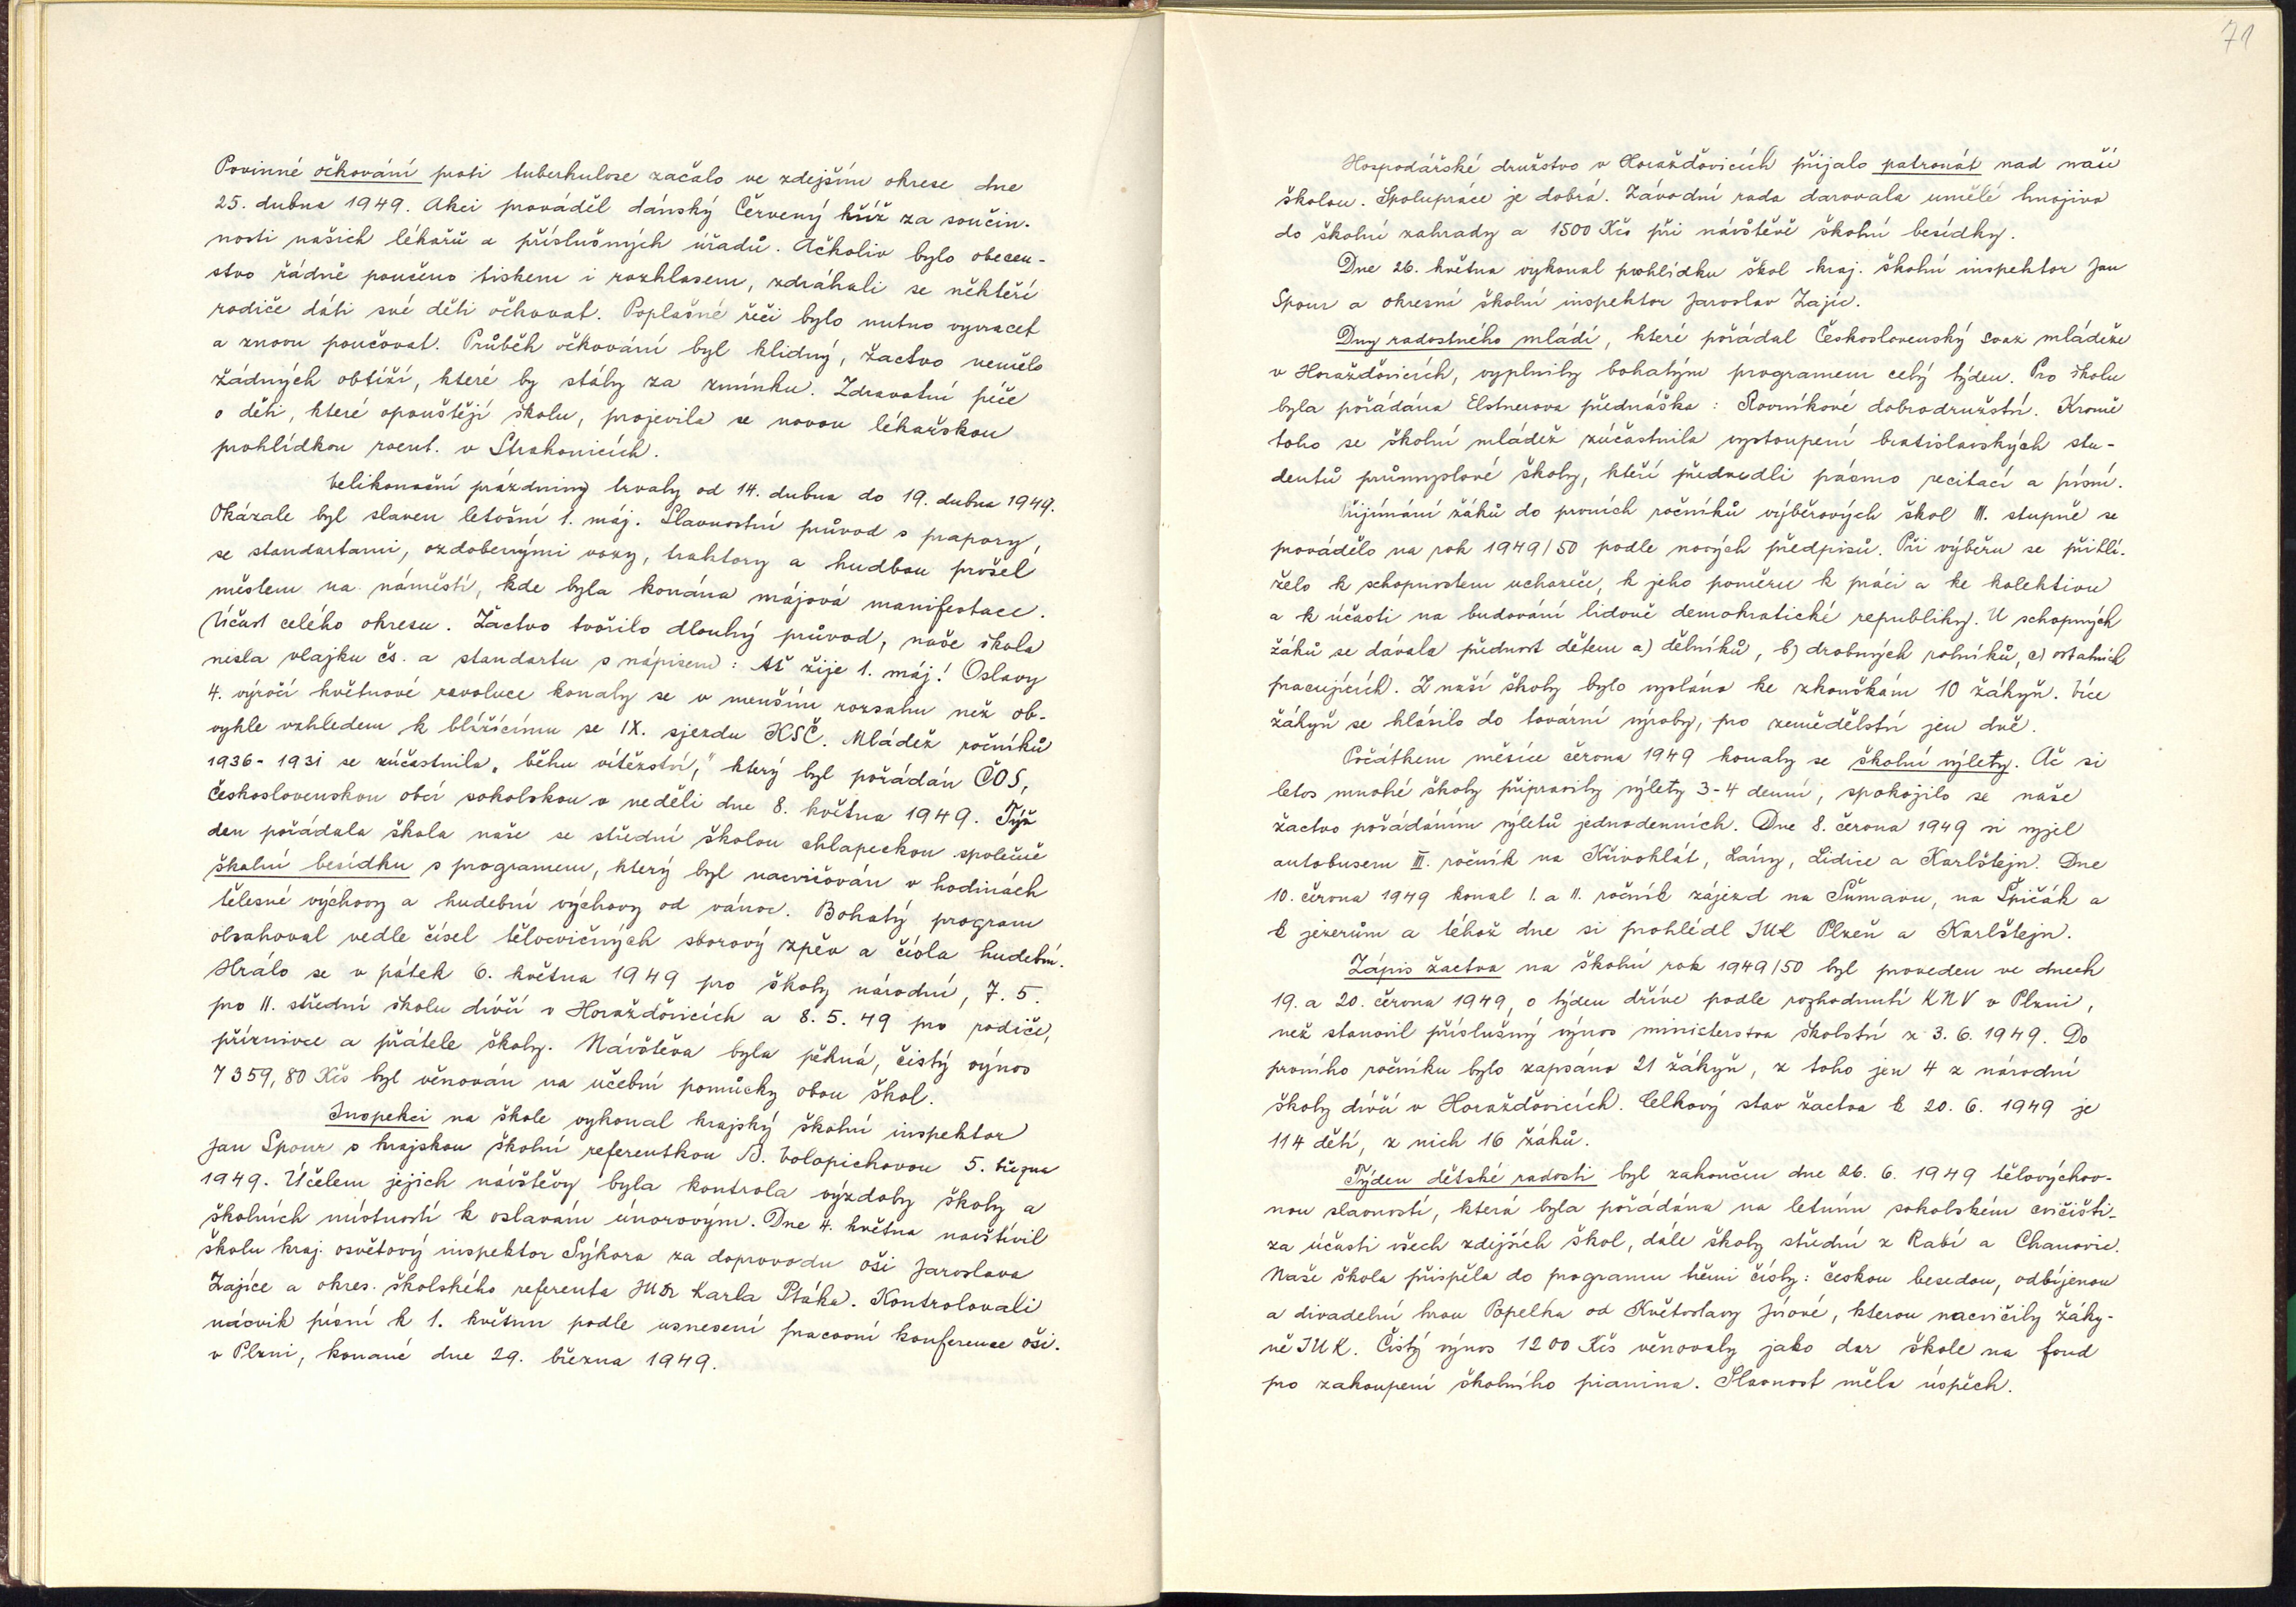 Povinné očkování proti tuberkulose začalo ve zdejším okrese dne
25. dubna 1949. Akci prováděl dánský Červený kříž za součin-
nosti našich lékařů a příslušných úřadů. Ačkoliv bylo obecen-
stvo řádně poučeno tiskem i rozhlasem, zdráhali se někteří
rodiče dáti své děti očkovat. Poplašné řeči bylo nutno vyvracet
a znovu poučovat. Průběh očkování byl klidný, žactvo nemělo
žádných obtíží, které by stály za zmínku. Zdravotní péče
o děti, které opouštějí školu, projevila se novou lékařskou
prohlídkou roent. v Strakonicích.
Velikonoční prázdniny trvaly od 14. dubna do 19. dubna 1949.
Okázale byl slaven letošní 1. máj. Slavnostní průvod s prapory,
se standartami, ozdobenými vozy, traktory a hudbou prošel
městem na náměstí, kde byla konána májová manifestace.
Účast celého okresu. Žactvo tvořilo dlouhý průvod, naše škola
nesla vlajku čs. a standartu s nápisem: Ať žije 1. máj! Oslavy
4. výročí květnové revoluce konaly se v menším rozsahu než ob-
vykle vzhledem k blížícímu se IX. sjezdu KSČ. Mládež ročníků
1936-1931 se zúčastnila „běhu vítězství," který byl pořádán ČOS,
Československou obcí sokolskou v neděli dne 8. května 1949. Týž
den pořádala škola naše se střední školou chlapeckou společně
školní besídku s programem, který byl nacvičován v hodinách
tělesné výchovy a hudební výchovy od vánoc. Bohatý program
obsahoval vedle čísel tělocvičných sborový zpěv a čísla hudební.
Hrálo se v pátek 6. května 1949 pro školy národní, 7. 5.
pro II. střední školu dívčí v Horažďovicích a 8. 5. 49 pro rodiče,
příznivce a přátele školy. Návštěva byla pěkná, čistý výnos
7359,80 Kčs byl věnován na učební pomůcky obou škol.
Inspekci na škole vykonal krajský školní inspektor
Jan Spour s krajskou školní referentkou B. Volopichovou 5. března
1949. Účelem jejich návštěvy byla kontrola výzdoby školy a
školních místností k oslavám únorovým. Dne 4. května navštívil
školu kraj. osvětový inspektor Sýkora za doprovodu oši Jaroslava
Zajíce a okres. školského referenta JUDr Karla Ptáka. Kontrolovali
nácvik písní k 1. květnu podle usnesení pracovní konference oši.
v Plzni, konané dne 29. března 1949.
71
Hospodářské družstvo v Horažďovicích přijalo patronát nad naší
školou. Spolupráce je dobrá. Závodní rada darovala umělé hnojivo
do školní zahrady a 1500 Kčs při návštěvě školní besídky.
Dne 26. května vykonal prohlídku škol kraj. školní inspektor Jan
Spour a okresní školní inspektor Jaroslav Zajíc.
Dny radostného mládí, které pořádal Československý svaz mládeže
v Horažďovicích, vyplnily bohatým programem celý týden. Pro školu
byla pořádána Elstnerova přednáška: Rovníkové dobrodružství. Kromě
toho se školní mládež zúčastnila vystoupení bratislavských stu-
dentů průmyslové školy, kteří předvedli pásmo recitací a písní.
Přijímání žáků do prvních ročníků výběrových škol III. stupně se
provádělo na rok 1949/50 podle nových předpisů. Při výběru se přihlí-
želo k schopnostem uchazeče, k jeho poměru k práci a ke kolektivu
a k účasti na budování lidově demokratické republiky. U schopných
žáků se dávala přednost dětem a) dělníků, b) drobných rolníků, c) ostatních
pracujících. Z naší školy bylo vysláno ke zkouškám 10 žákyň. Více
žákyň se hlásilo do tovární výroby, pro zemědělství jen dvě.
Počátkem měsíce června 1949 konaly se školní výlety. Ač si
letos mnohé školy připravily výlety 3-4 denní, spokojilo se naše
žactvo pořádáním výletů jednodenních. Dne 8. června 1949 si vyjel
autobusem III. ročník na Křivoklát, Lány, Lidice a Karlštejn. Dne
10. června 1949 konal I. a II. ročník zájezd na Šumavu, na Špičák a
k jezerům a téhož dne si prohlédl JUK Plzeň a Karlštejn.
Zápis žactva na školní rok 1949/50 byl proveden ve dnech
19. a 20. června 1949, o týden dříve podle rozhodnutí KNV v Plzni,
než stanovil příslušný výnos ministerstva školství z 3. 6. 1949. Do
prvního ročníku bylo zapsáno 21 žákyň, z toho jen 4 z národní
školy dívčí v Horažďovicích. Celkový stav žactva k 20. 6. 1949 je
114 dětí, z nich 16 žáků.
Týden dětské radosti byl zakončen dne 26. 6. 1949 tělovýchov-
nou slavností, která byla pořádána na letním sokolském cvičišti
za účasti všech zdejších škol, dále školy střední z Rabí a Chanovic.
Naše škola přispěla do programu třemi čísly: českou besedou, odbíjenou
a divadelní hrou Popelka od Květoslavy Jírové, kterou nacvičily žáky-
ně JUK. Čistý výnos 1200 Kčs věnovaly jako dar škole na fond
pro zakoupení školního pianina. Slavnost měla úspěch.